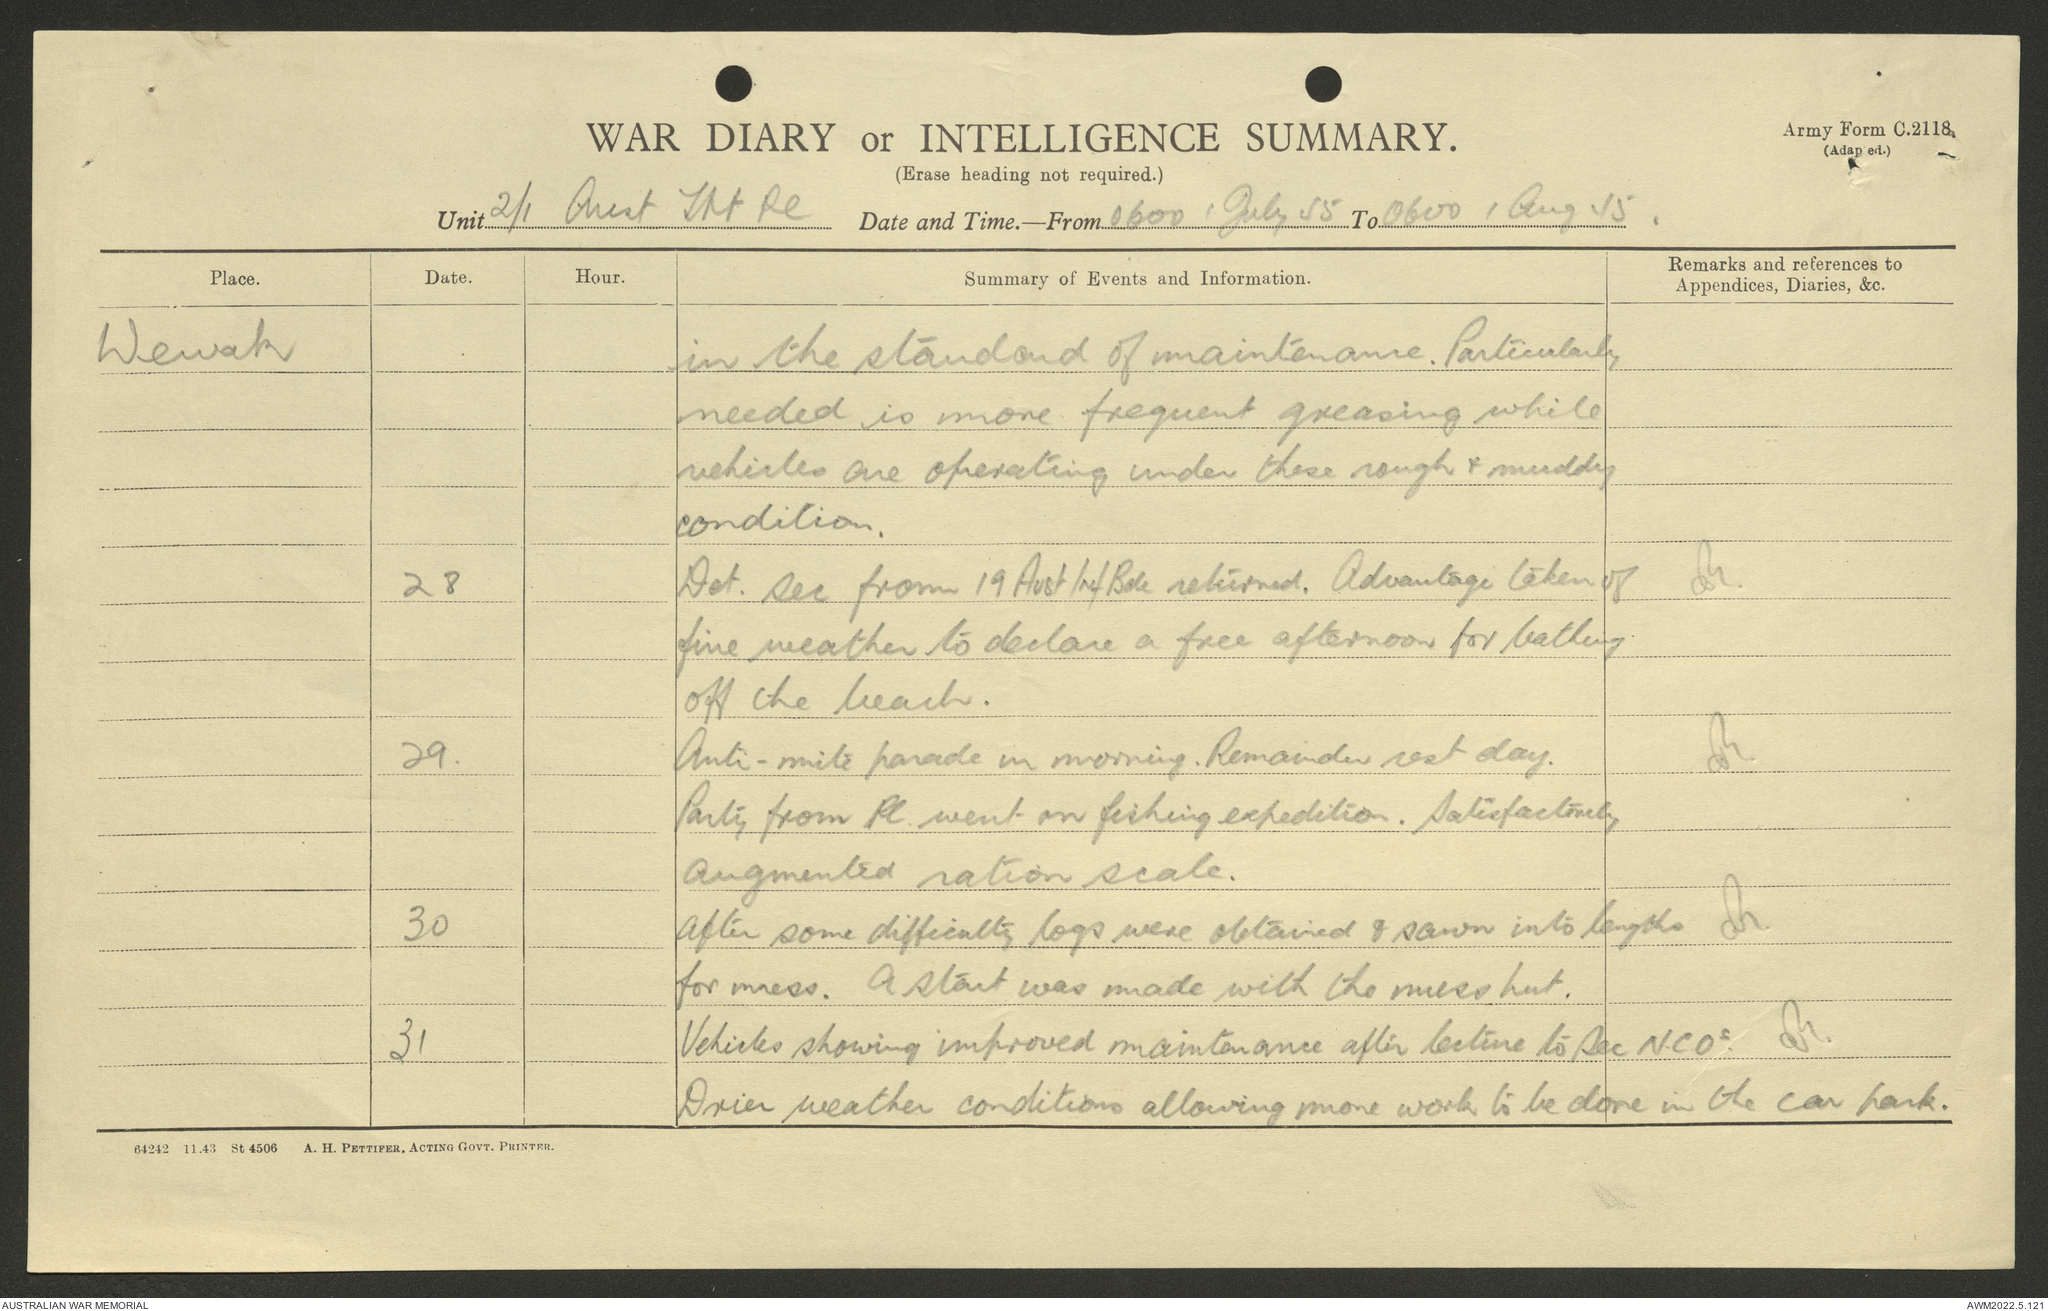 WAR DIARY or INTELLIGENCE SUMMARY.
Army Form C.2118.
(Adapted.)
(Erase heading not required.)
Unit 2/1 Aust Tpt Pl Date and Time.—From 0600 1 July 45 To 0600 1 Aug 45.
Place. Date. Hour. Summary of Events and Information. Remarks and references to
Appendices, Diaries, &c.
Wewak in the standard of maintenance. Particularly
needed is more frequent greasing while
vehicles are operating under these rough & muddy
condition.
28 Det. sec from 19 Aust Inf Bde returned. Advantage taken of
fine weather to declare a free afternoon for bathing
off the beach.
29. Anti-mite parade in morning. Remainder rest day.
Party from Pl. went on fishing expedition. Satisfactorily
augmented ration scale.
30 After some difficulty logs were obtained & sawn into lengths
for mess. A start was made with the mess hut.
31 Vehicles showing improved maintenance after lecture to Sec N.C.Os.
Drier weather conditions allowing more work to be done in the car park.
64242 11.43 St 4506 A. H. PETTIFER, ACTING GOVT. PRINTER.
AUSTRALIAN WAR MEMORIAL AWM2022.5.121